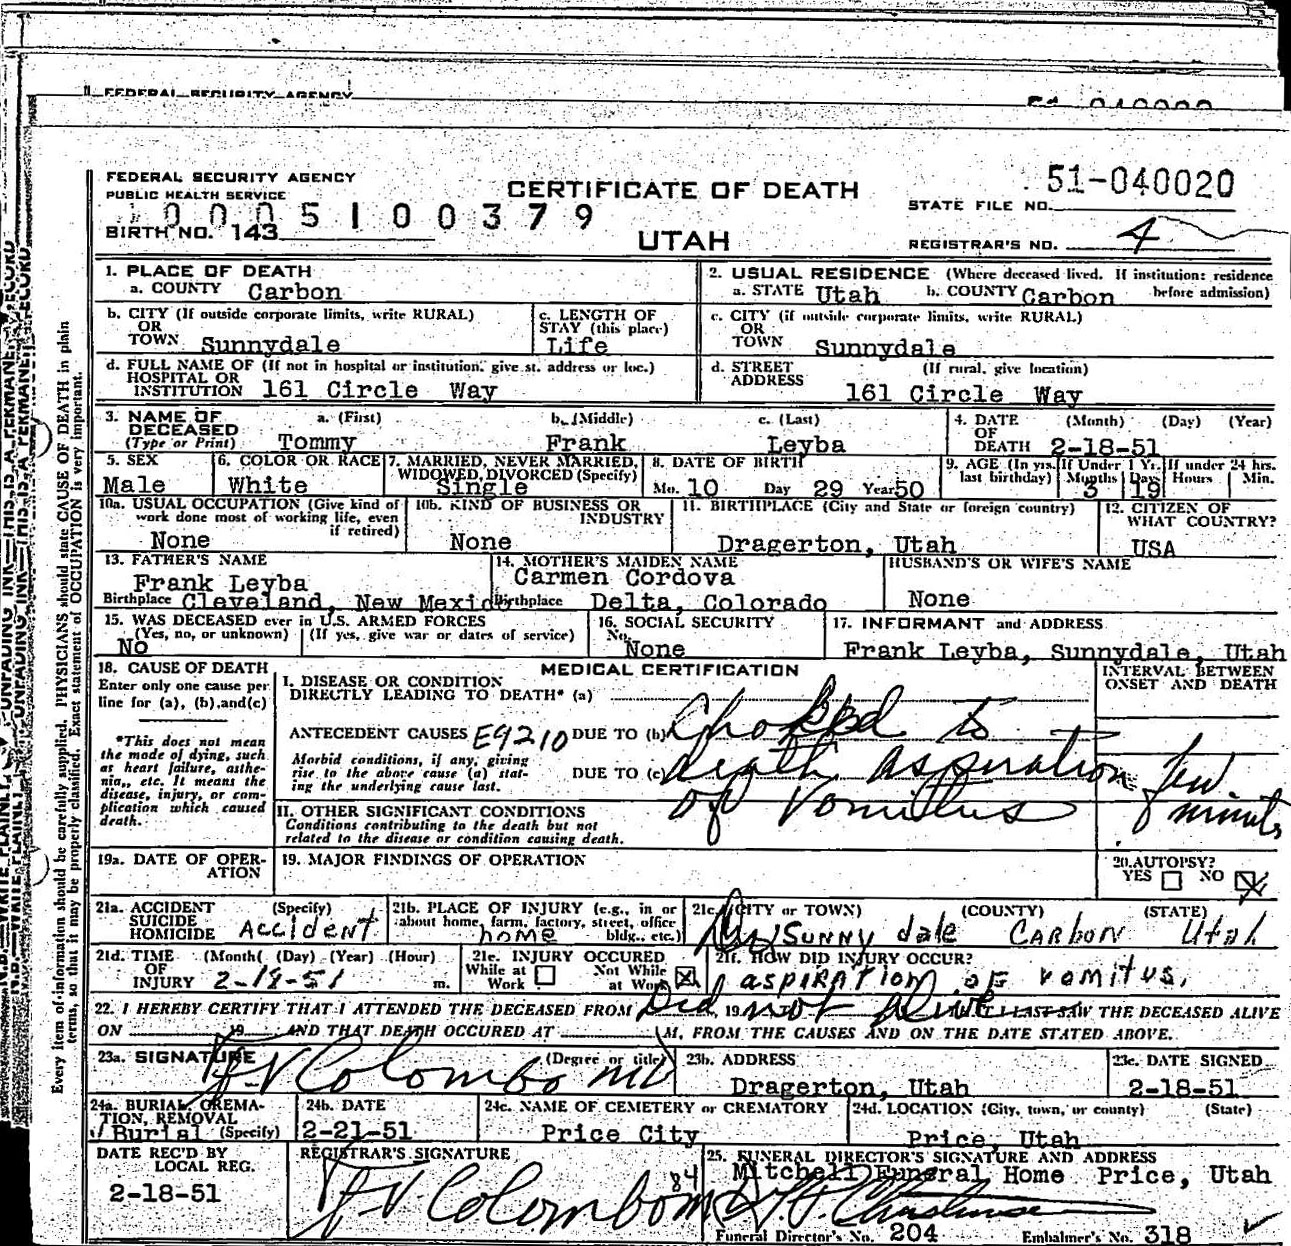 FEDERAL SECURITY AGENCY
FEDERAL SECURITY AGENCY
PUBLIC HEALTH SERVICE
CERTIFICATE OF DEATH
51-040020
STATE FILE NO.
0005100379
BIRTH NO. 143
UTAH
REGISTRAR'S NO. 4
1. PLACE OF DEATH
a. COUNTY Carbon
2. USUAL RESIDENCE (Where deceased lived. If institution: residence before admission)
a. STATE Utah b. COUNTY Carbon
b. CITY (If outside corporate limits, write RURAL)
OR
TOWN Sunnydale
c. LENGTH OF
STAY (this place)
Life
c. CITY (if outside corporate limits, write RURAL)
OR
TOWN Sunnydale
d. FULL NAME OF (If not in hospital or institution, give st. address or loc.)
HOSPITAL OR
INSTITUTION 161 Circle Way
d. STREET (If rural, give location)
ADDRESS
161 Circle Way
3. NAME OF a. (First) b. (Middle) c. (Last)
DECEASED
(Type or Print) Tommy Frank Leyba
4. DATE (Month) (Day) (Year)
OF
DEATH 2-18-51
5. SEX
Male
6. COLOR OR RACE
White
7. MARRIED, NEVER MARRIED,
WIDOWED, DIVORCED (Specify)
Single
8. DATE OF BIRTH
Mo. 10 Day 29 Year 50
9. AGE (In yrs. last birthday)
If Under 1 Yr.
Months 3 Days 19
If under 24 hrs.
Hours Min.
10a. USUAL OCCUPATION (Give kind of
work done most of working life, even
if retired)
None
10b. KIND OF BUSINESS OR
INDUSTRY
None
11. BIRTHPLACE (City and State or foreign country)
Dragerton, Utah
12. CITIZEN OF
WHAT COUNTRY?
USA
13. FATHER'S NAME
Frank Leyba
Birthplace Cleveland, New Mexico
14. MOTHER'S MAIDEN NAME
Carmen Cordova
Birthplace Delta, Colorado
HUSBAND'S OR WIFE'S NAME
None
15. WAS DECEASED ever in U.S. ARMED FORCES
(Yes, no, or unknown) (If yes, give war or dates of service)
No
16. SOCIAL SECURITY
No.
None
17. INFORMANT and ADDRESS
Frank Leyba, Sunnydale, Utah
18. CAUSE OF DEATH
Enter only one cause per
line for (a), (b), and (c)
*This does not mean
the mode of dying, such
as heart failure, asthe-
nia,, etc. It means the
disease, injury, or com-
plication which caused
death.
MEDICAL CERTIFICATION
I. DISEASE OR CONDITION
DIRECTLY LEADING TO DEATH* (a)
ANTECEDENT CAUSES E9210 DUE TO (b) Chokked to
Morbid conditions, if any, giving
rise to the above cause (a) stat-
ing the underlying cause last.
DUE TO (c) death aspiration
of vomitus
II. OTHER SIGNIFICANT CONDITIONS
Conditions contributing to the death but not
related to the disease or condition causing death.
INTERVAL BETWEEN
ONSET AND DEATH
few
minuts
19a. DATE OF OPER-
ATION
19. MAJOR FINDINGS OF OPERATION
20. AUTOPSY?
YES NO
21a. ACCIDENT (Specify)
SUICIDE
HOMICIDE Accident
21b. PLACE OF INJURY (e.g., in or
about home, farm, factory, street, office
bldg., etc.)
home
21c. (CITY or TOWN) (COUNTY) (STATE)
Sunnydale Carbon Utah
21d. TIME (Month( (Day) (Year) (Hour)
OF
INJURY 2-18-51 m.
21e. INJURY OCCURED
While at Work Not While at Work
21f. HOW DID INJURY OCCUR?
aspiration of vomitus.
22. I HEREBY CERTIFY THAT I ATTENDED THE DECEASED FROM Did, 19 not alive I LAST SAW THE DECEASED ALIVE
ON 19 AND THAT DEATH OCCURED AT M, FROM THE CAUSES AND ON THE DATE STATED ABOVE.
23a. SIGNATURE (Degree or title)
F.V Colombo MD
23b. ADDRESS
Dragerton, Utah
23c. DATE SIGNED
2-18-51
24a. BURIAL, CREMA-
TION, REMOVAL
Burial (Specify)
24b. DATE
2-21-51
24c. NAME OF CEMETERY or CREMATORY
Price City
24d. LOCATION (City, town, or county) (State)
Price, Utah
DATE REC'D BY
LOCAL REG.
2-18-51
REGISTRAR'S SIGNATURE
F.V. Colombo
84
25. FUNERAL DIRECTOR'S SIGNATURE AND ADDRESS
Mitchell Funeral Home Price, Utah
Funeral Director's No. 204 Embalmer's No. 318
Every item of information should be carefully supplied. PHYSICIANS should state CAUSE OF DEATH in plain
terms, so that it may be properly classified. Exact statement of OCCUPATION is very important.